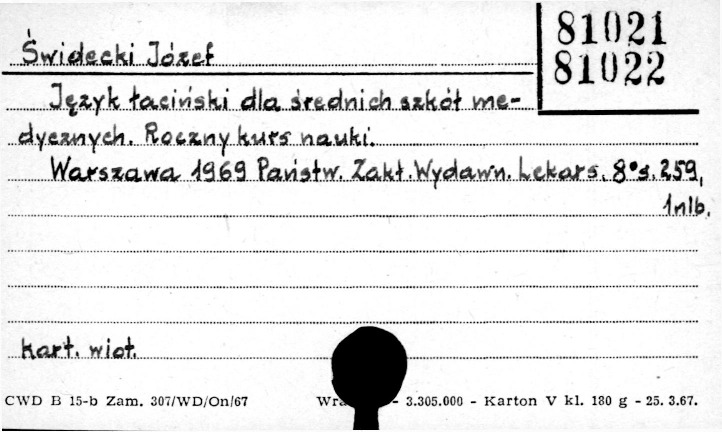 81021
81022
Świdecki Józef
Język łaciński dla średnich szkół me-
dycznych. Roczny kurs nauki.
Warszawa 1969 Państw. Zakł. Wydawn. Lekars. 8° s. 259,
1 nlb.
kart. wiot.
CWD B 15-b Zam. 307/WD/On/67 - 3.305.000 - Karton V kl. 180 g - 25. 3.67.